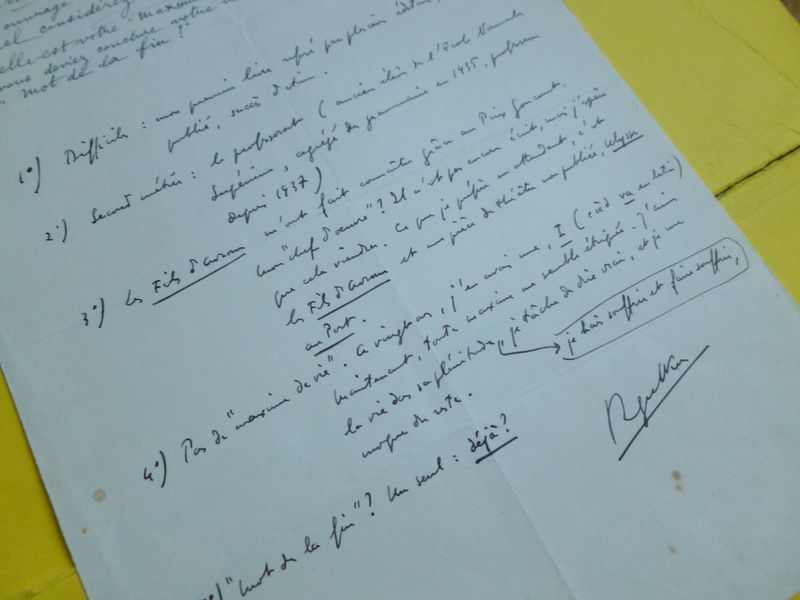 ouvrage
considérez
elle est votre "maxime
vous deviez conclure notre
"mot de la fin"?
1°) Difficile : mon premier livre refusé par plusieurs éditeurs,
publié, succès d'estime.
2°) Second métier : le professorat (ancien élève de l'Ecole Normale
Supérieure, agrégé de grammaire en 1935, professeur
depuis 1937)
3°) Les Fils d'avrom m'ont fait connaître grâce au Prix Goncourt.
Mon "chef d'oeuvre"? Il n'est pas encore écrit, mais j'espère
que cela viendra. Ce que je préfère en attendant, c'est
les Fils d'avrom et une pièce de théâtre non publiée, Ulysse
au Port.
4°) Pas de "maxime de vie". A vingt ans, j'en avais une, I (càd va en latin)
Maintenant, toute maxime me semble étriquée. J'aime
la vie dans sa plénitude, je tâche de dire vrai, et je me
moque du reste.
je hais souffrir et faire souffrir,
"mot de la fin"? Un seul : déjà?